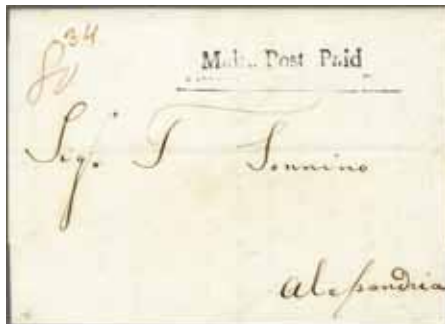 34
Malta Post Paid
Sigr. I Sonnino
Alessandria